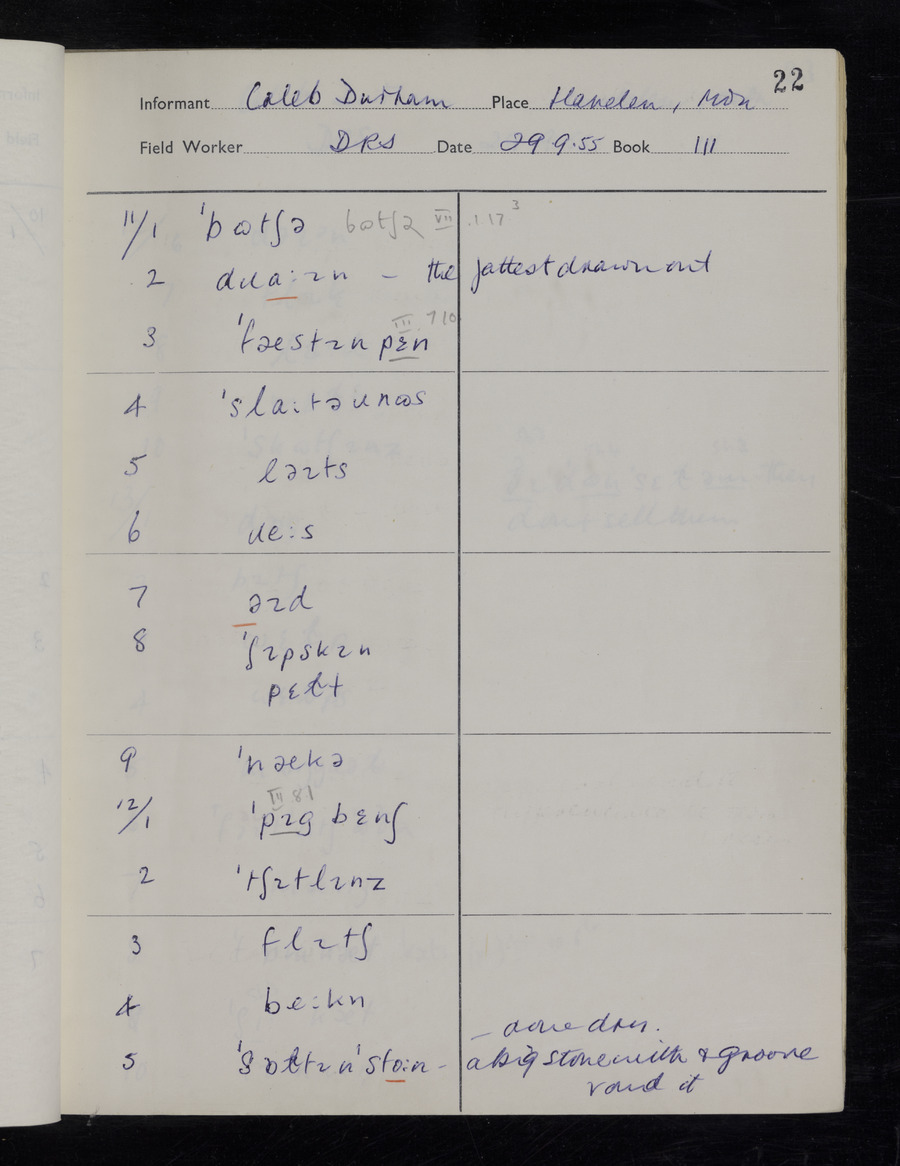 22
Informant Caleb Durham Place Hanelen, Mon
Field Worker DRS Date 29 9.55 Book III
11/1 ˈbɷtʃə bɷtʃə VII .1.17 3
2 dɹɑːɪn – the fattest drawn out
III 7 10
3 ˈfæstɪn pɛn
4 ˈslaːtəɹɷs
5 ləɪts
6 ɹeːs
7 əɪd
8 ˈʃɪpskɪn
pɛɫt
9 ˈnækə
III 81
12/1 ˈpɪg bɛnʃ
2 ˈtʃɪtlɪnz
3 flɪtʃ
4 beːkn
– done dry.
5 ˈsɒɫtɪnˈstoːn – a big stone with & groove
round it